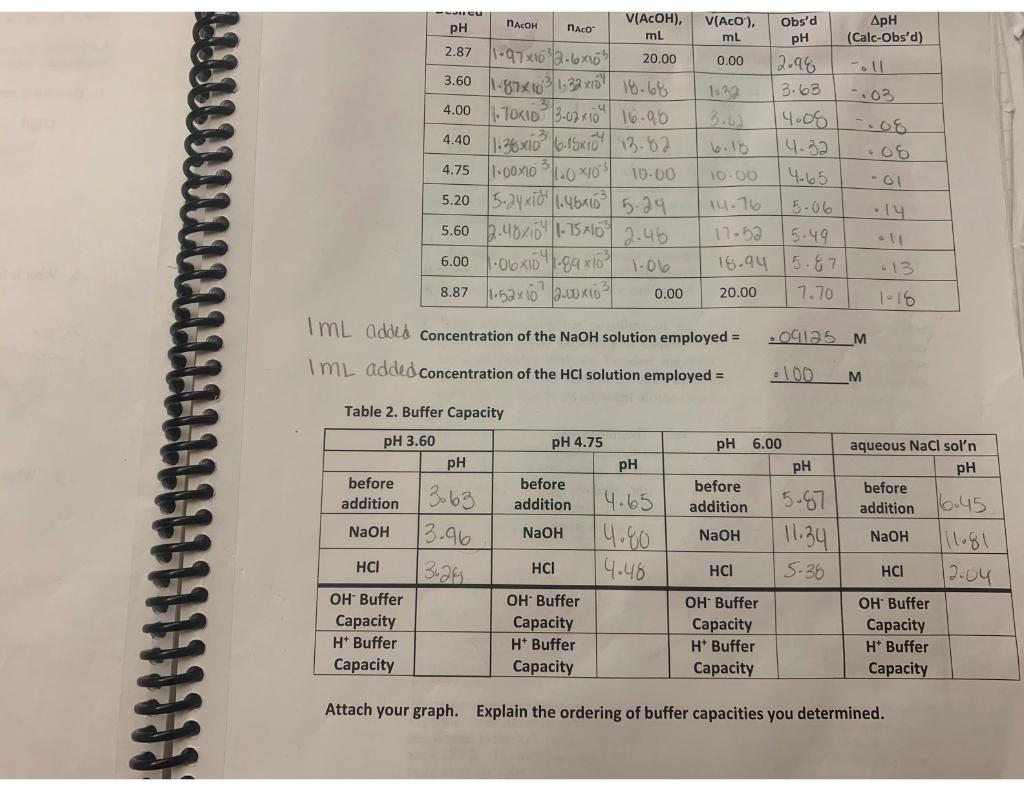 pH nAcOH nAcO- V(AcOH), mL V(AcO-), mL Obs'd pH ΔpH (Calc-Obs'd)
2.87 1.97x10-3 2.6x10-5 20.00 0.00 2.98 -.11
3.60 1.87x10-3 1.32x10-4 18.68 1.32 3.63 -.03
4.00 1.70x10-3 3.02x10-4 16.98 3.02 4.08 -.08
4.40 1.38x10-3 6.18x10-4 13.82 6.18 4.32 .08
4.75 1.00x10-3 1.0x10-3 10.00 10.00 4.65 .01
5.20 5.24x10-4 1.48x10-3 5.24 14.76 5.06 .14
5.60 2.48x10-4 1.75x10-3 2.48 17.52 5.49 .11
6.00 1.06x10-4 1.89x10-3 1.06 18.94 5.87 .13
8.87 1.52x10-7 2.00x10-3 0.00 20.00 7.70 1.18
1mL added Concentration of the NaOH solution employed = .09125 M
1mL added Concentration of the HCl solution employed = .100 M
Table 2. Buffer Capacity
pH 3.60 pH 4.75 pH 6.00 aqueous NaCl sol'n
pH pH pH pH
before addition 3.63 before addition 4.65 before addition 5.87 before addition 6.45
NaOH 3.96 NaOH 4.80 NaOH 11.34 NaOH 11.81
HCl 3.28 HCl 4.48 HCl 5.38 HCl 2.04
OH- Buffer Capacity OH- Buffer Capacity OH- Buffer Capacity OH- Buffer Capacity
H+ Buffer Capacity H+ Buffer Capacity H+ Buffer Capacity H+ Buffer Capacity
Attach your graph. Explain the ordering of buffer capacities you determined.